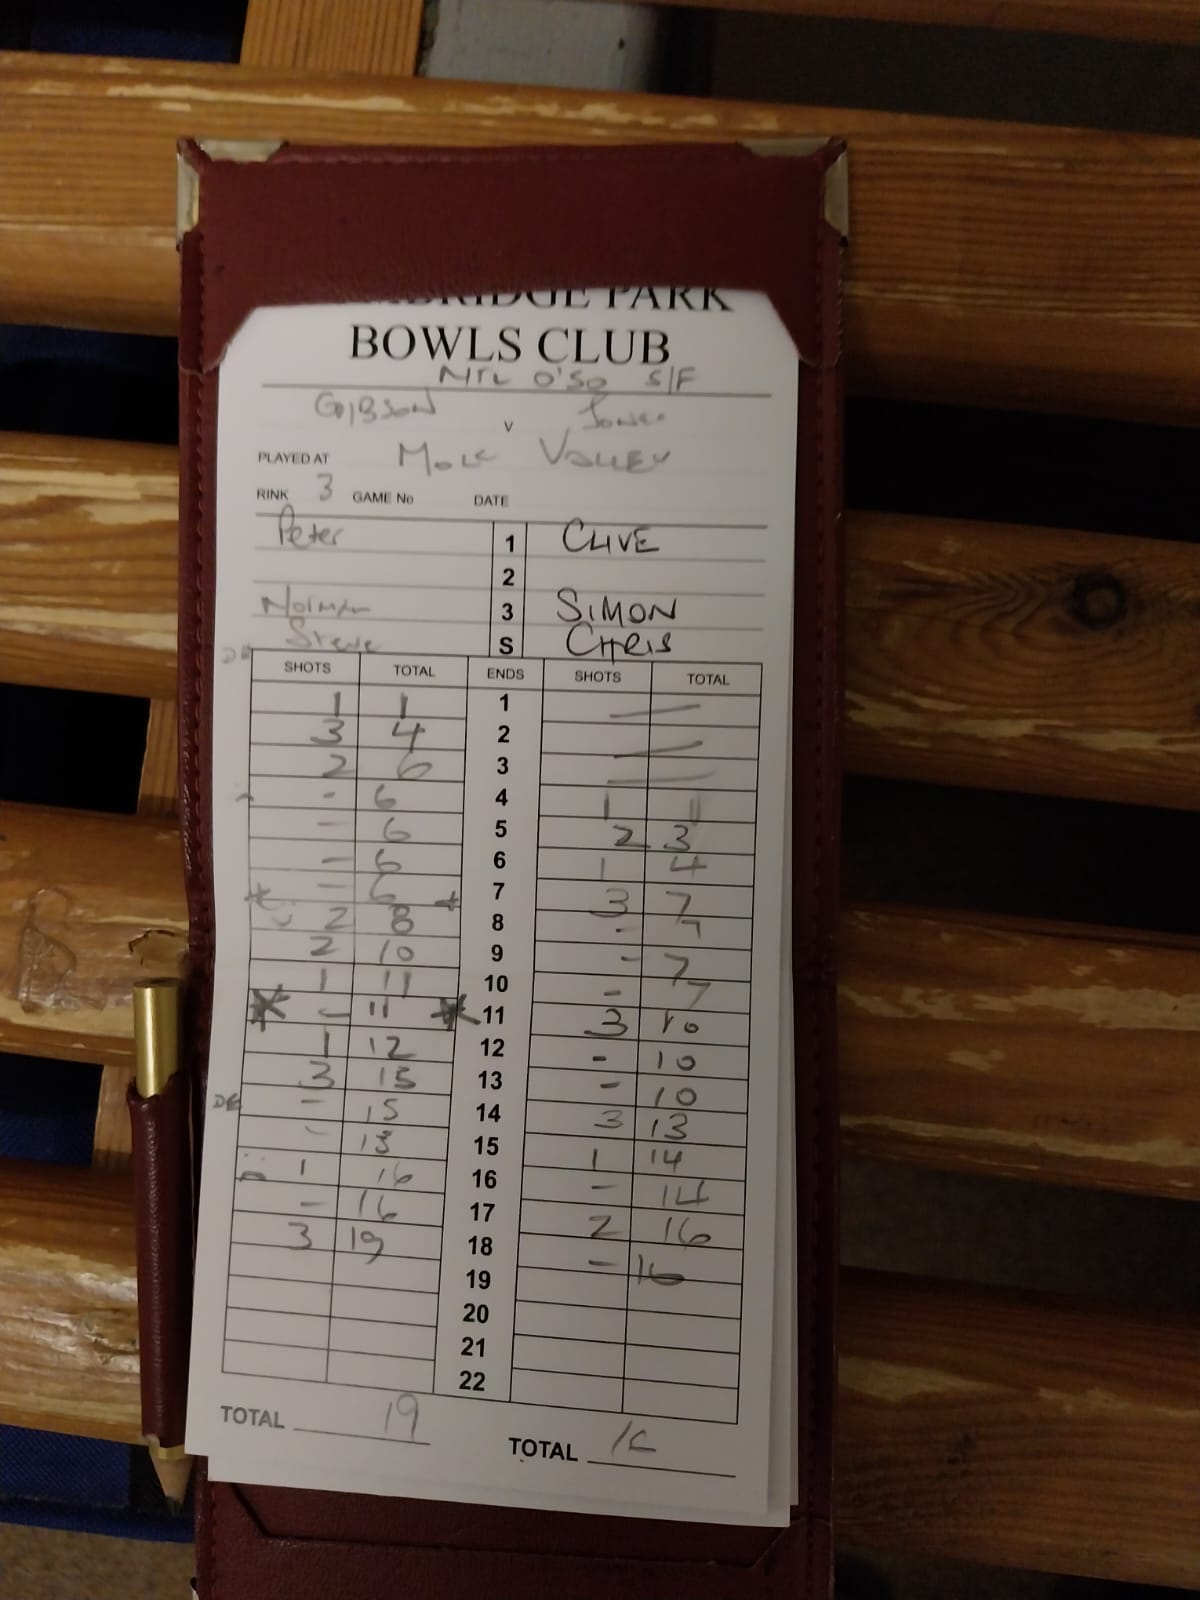 BRIDGE PARK
BOWLS CLUB
NTL O'50 S/F
GIBSON v Jones
PLAYED AT Mole VALLEY
RINK 3 GAME No DATE
Peter 1 CLIVE
2
Norman 3 SIMON
Steve S CHRIS
SHOTS TOTAL ENDS SHOTS TOTAL
1 1 1 —
3 4 2 —
2 6 3 —
- 6 4 1 1
- 6 5 2 3
- 6 6 1 4
* - 6 * 7 3 7
2 8 8 - 7
2 10 9 - 7
1 11 10 - 7
* - 11 * 11 3 10
1 12 12 - 10
3 15 13 - 10
DE - 15 14 3 13
- 15 15 1 14
1 16 16 - 14
- 16 17 2 16
3 19 18 - 16
19
20
21
22
TOTAL 19 TOTAL 16